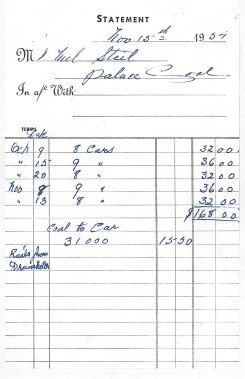 STATEMENT
Nov 15th 195
M Steel
Palace Coal
In a/c With
TERMS
Date
Oct 9 8 Cars 32 00
" 15 9 " 36 00
" 20 8 " 32 00
Nov 8 9 " 36 00
" 13 8 " 32 00
$168 00
Coal to Car
31 000 15-50
Rails from